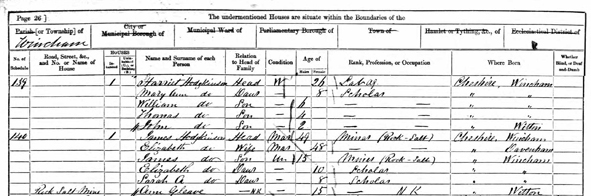 Page 26] The undermentioned Houses are situate within the Boundaries of the
Parish [or Township] of City or Municipal Borough of Municipal Ward of Parliamentary Borough of Town of Hamlet or Tything, &c., of Ecclesiastical District of
Wincham
No. of Schedule Road, Street, &c., and No. or Name of House HOUSES Name and Surname of each Person Relation to Head of Family Condition Age of Rank, Profession, or Occupation Where Born Whether Blind, or Deaf-and-Dumb
139 1 Harriet Hodgkinson Head W 26 Cheshire, Wincham
Mary Ann do Daur 8 Scholar " "
William do Son 6 — " "
Thomas do Son 4 — " "
John do Son 2 — " Witton
140 1 James Hodgkinson Head Mar 49 Miner (Rock-Salt) Cheshire, Wincham
Elizabeth do Wife Mar 48 — " Davenham
James do Son Un 15 Miner (Rock-Salt) " Wincham
Elizabeth do Daur 10 Scholar " "
Sarah A. do Daur 8 Scholar " "
Rock Salt Mine Ann Gleave — NK 15 — N.K. Witton